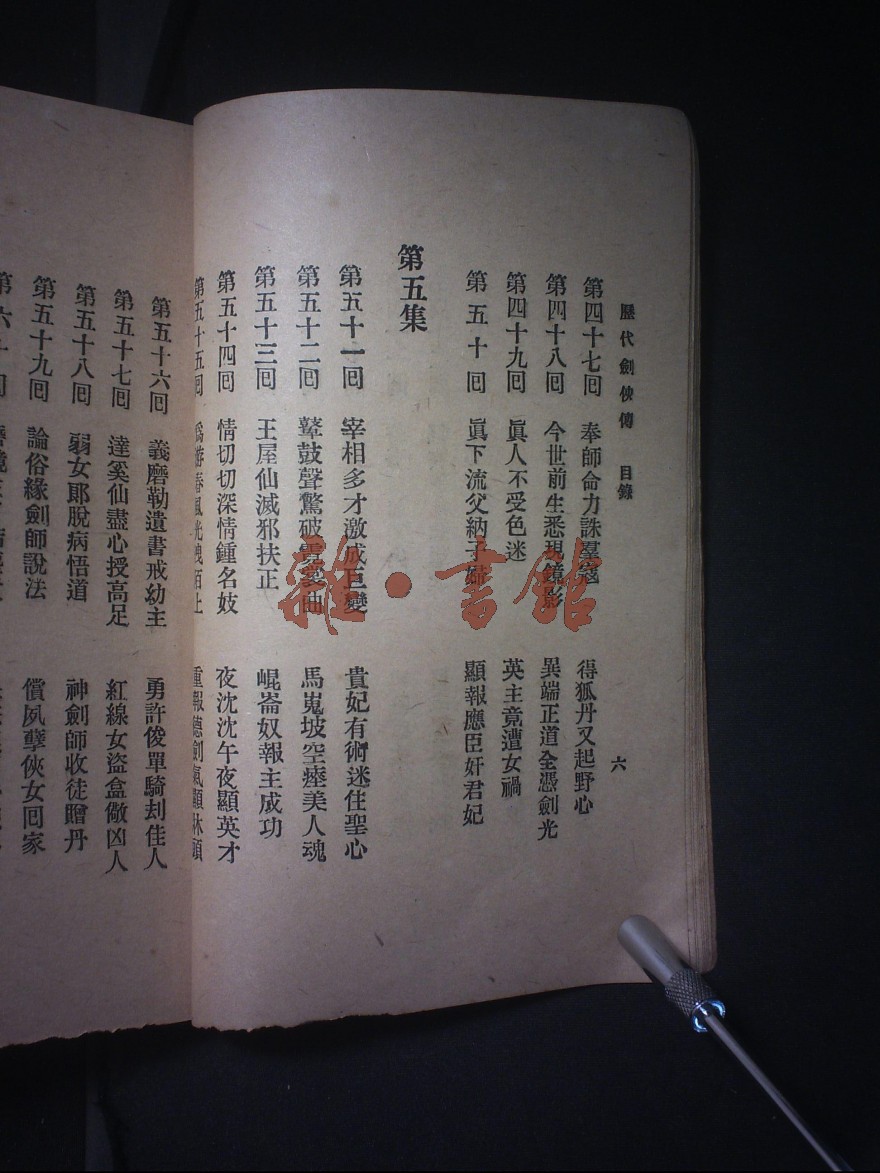 歷代劍俠傳　目錄
六
第四十七囘　奉師命力誅羣寇　得狐丹又起野心
第四十八囘　今世前生悉現鏡影　異端正道全憑劍光
第四十九囘　眞人不受色迷　英主竟遭女禍
第五十囘　眞下流父納子婦　顯報應臣奸君妃
第五集
第五十一囘　宰相多才激成巨變　貴妃有術迷住聖心
第五十二囘　鼙鼓聲驚破霓裳曲　馬嵬坡空瘞美人魂
第五十三囘　王屋仙滅邪扶正　崐崙奴報主成功
第五十四囘　情切切深情鍾名妓　夜沈沈午夜顯英才
第五十五囘　爲游春風光洩陌上　重報德劍氣顯牀頭
第五十六囘　義磨勒遺書戒幼主　勇許俊單騎刦佳人
第五十七囘　達奚仙盡心授高足　紅線女盜盒儆凶人
第五十八囘　弱女郞脫病悟道　神劍師收徒贈丹
第五十九囘　論俗緣劍師說法　償夙孽俠女囘家
雜·書館